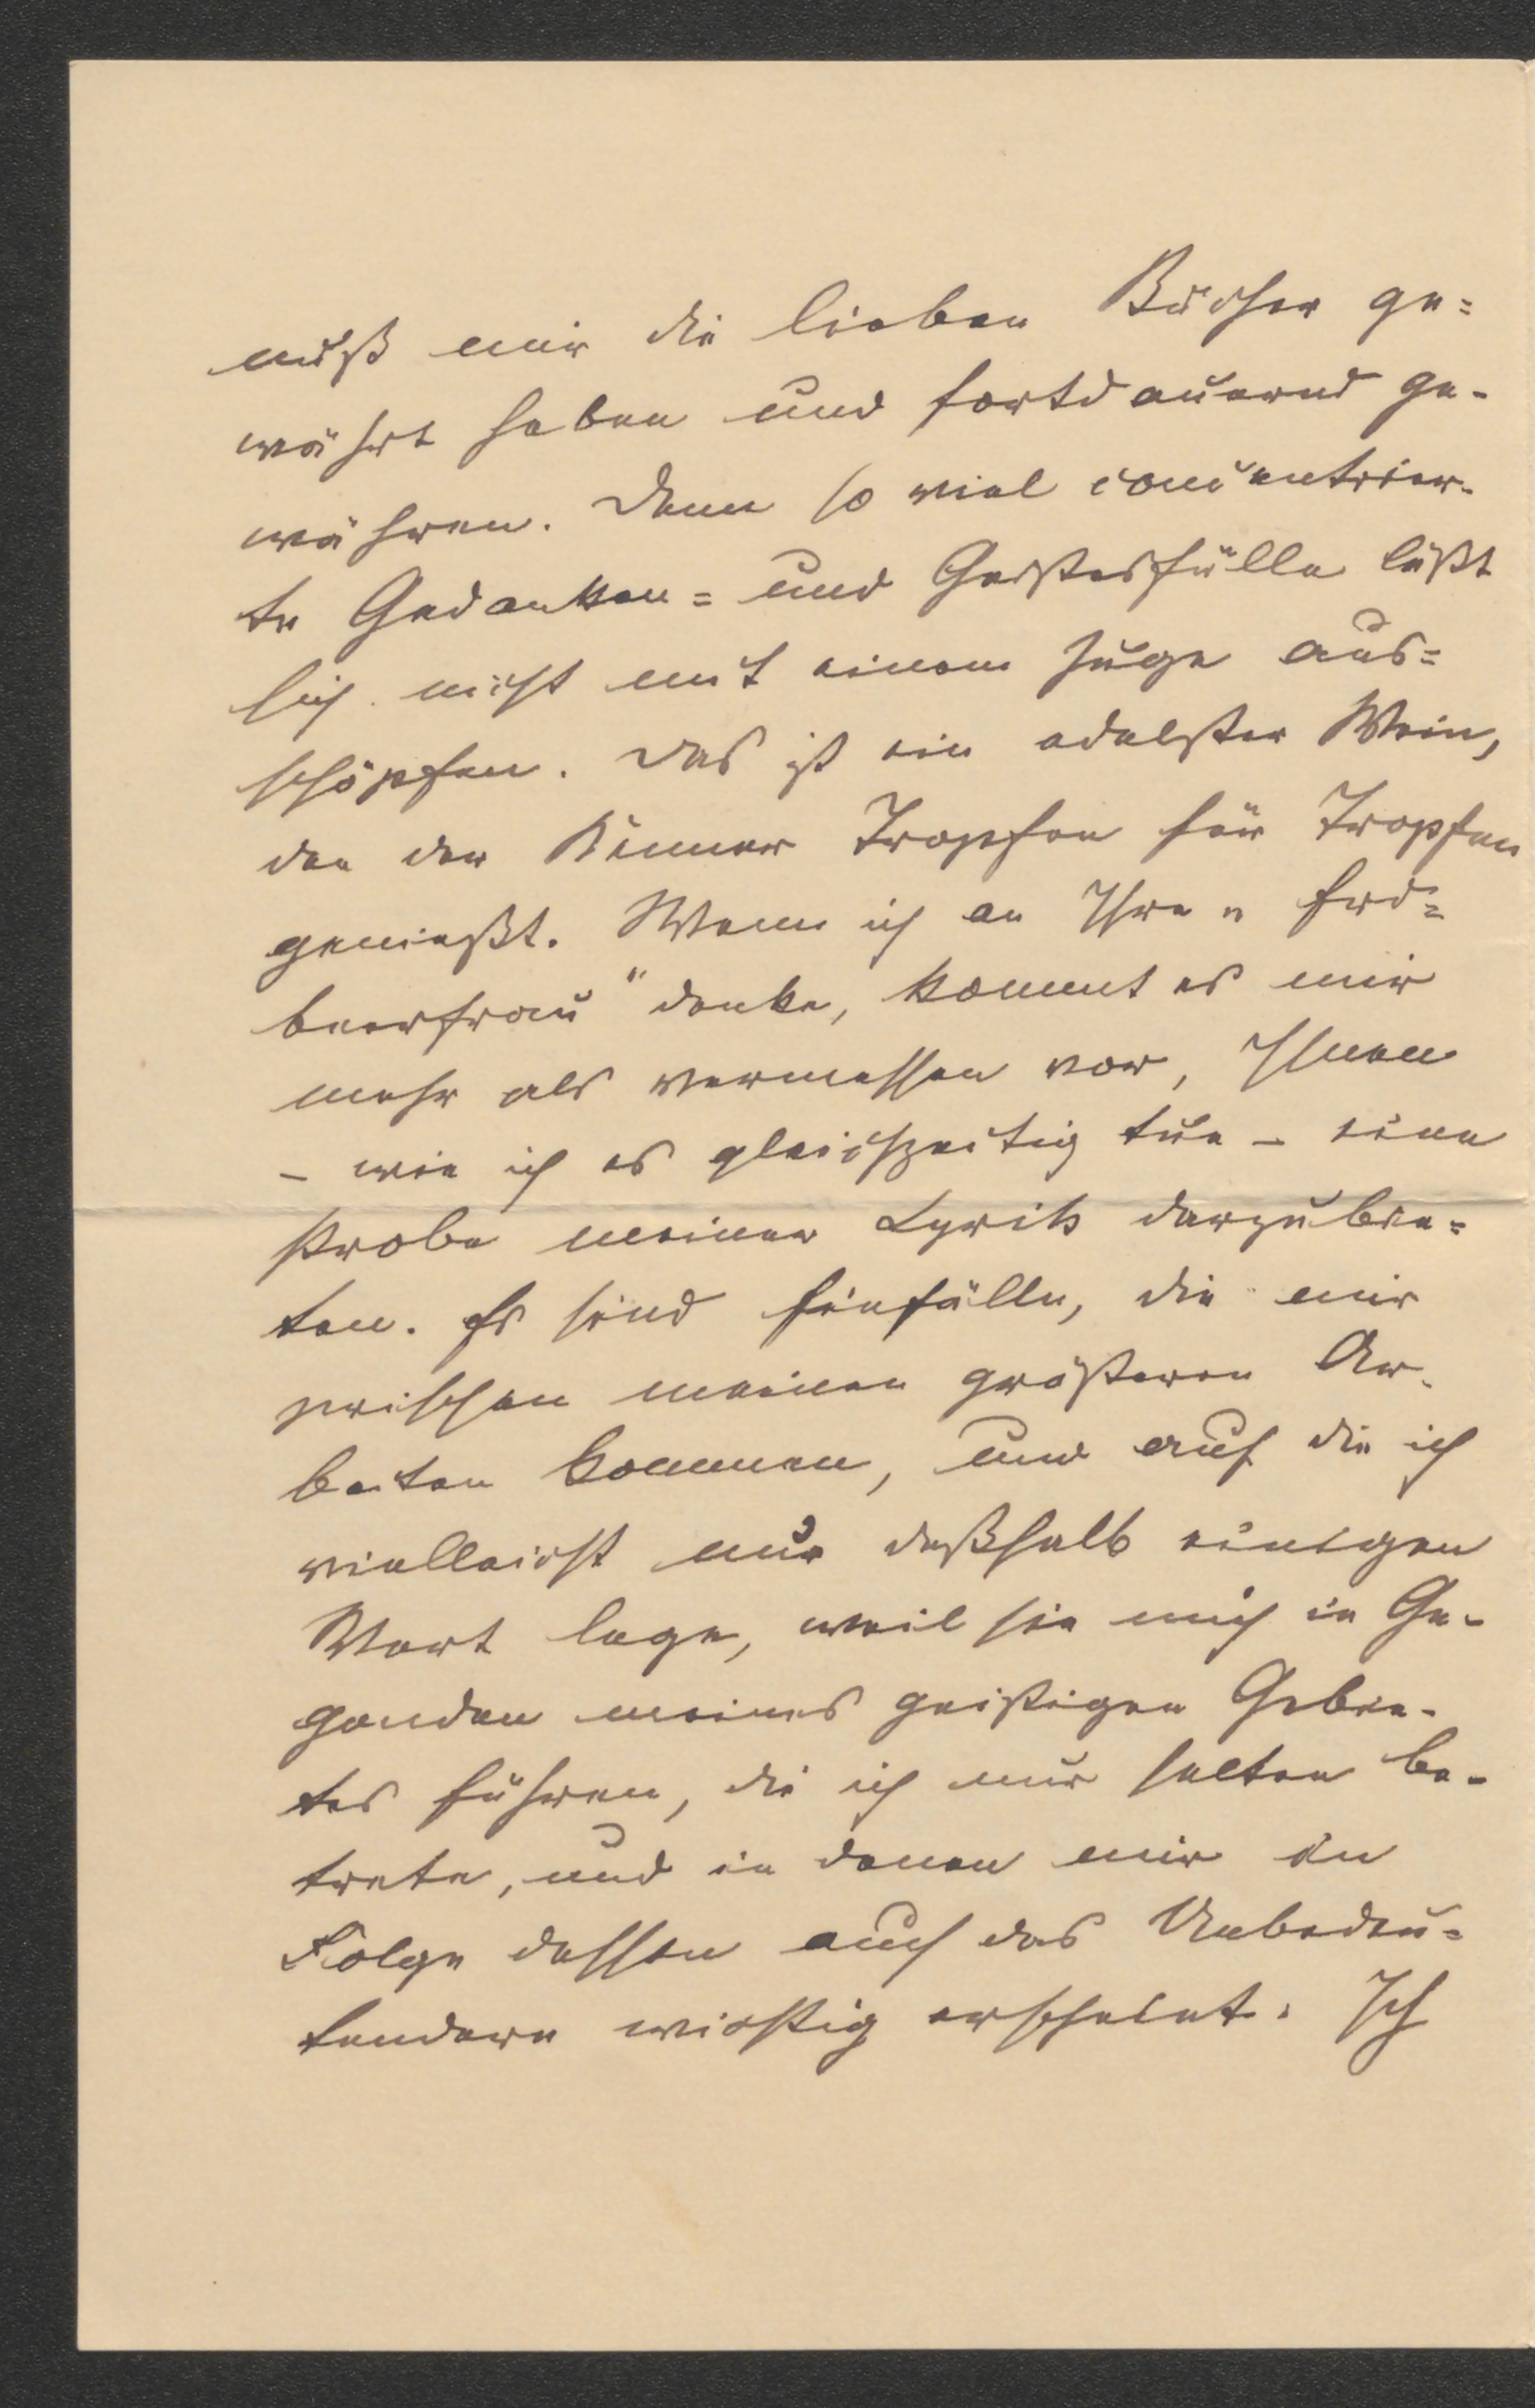 nuß mir die lieben Bücher ge=
währt haben und fortdauernd ge-
währen. Denn so viel concentrier-
te Gedanken= und Geistesfülle läßt
sich nicht mit einem Zuge aus=
schöpfen. Das ist ein edelster Wein,
den der Kenner Tropfen für Tropfen
genießt. Wenn ich an Ihre „Erd=
beerfrau" denke, kommt es mir
mehr als vermessen vor, Ihnen
– wie ich es gleichzeitig tue – eine
Probe meiner Lyrik darzubie=
ten. Es sind Einfälle, die mir
zwischen meinen größeren Ar-
beiten kommen, und auf die ich
vielleicht nur deßhalb einigen
Wert lege, weil sie mich in Ge-
genden meines geistigen Gebie-
tes führen, die ich nur selten be-
trete, und in denen mir in
Folge dessen auch das Unbedeu=
tendere wichtig erscheint. Ich